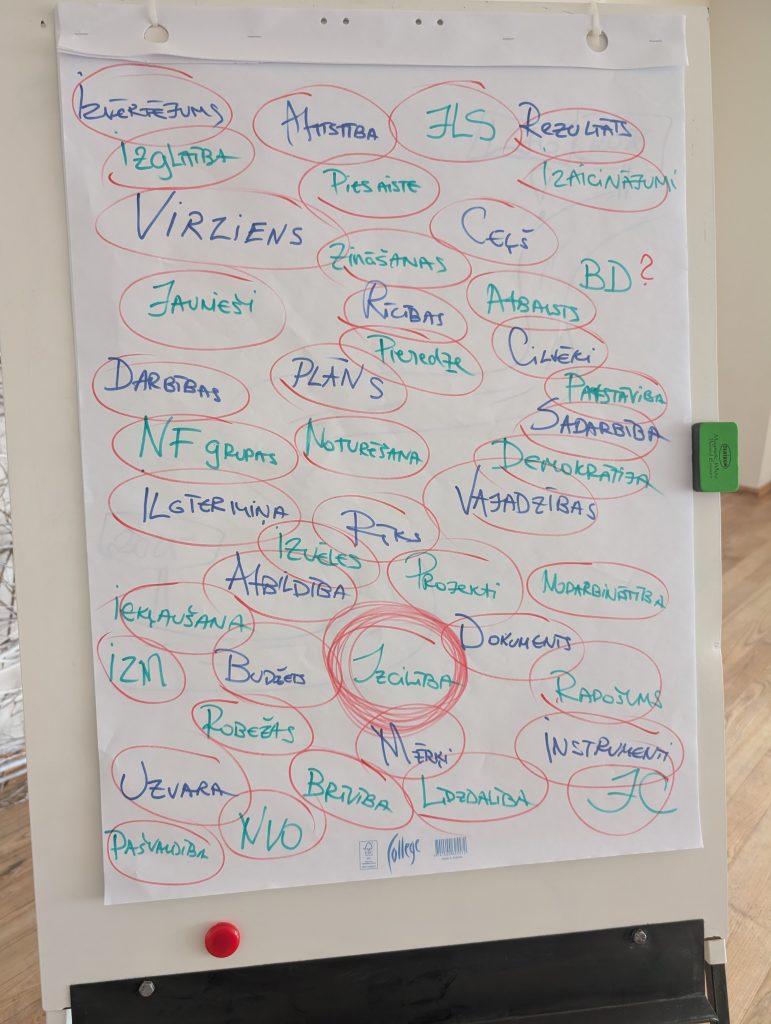 IZVĒRTĒJUMS
ATTĪSTĪBA
JLS
REZULTĀTS
IZGLĪTĪBA
PIESAISTE
IZAICINĀJUMI
VIRZIENS
CEĻŠ
ZINĀŠANAS
BD?
JAUNIEŠI
RĪCĪBAS
ATBALSTS
PIEREDZE
CILVĒKI
DARBĪBAS
PLĀNS
PATSTĀVĪBA
SADARBĪBA
NF grupas
NOTURĒŠANA
DEMOKRĀTIJA
ILGTERMIŅA
RĪKS
VAJADZĪBAS
IZVĒLES
ATBILDĪBA
PROJEKTI
NODARBINĀTĪBA
IEKĻAUŠANA
DOKUMENTS
IZM
BUDŽETS
IZCILĪBA
RADOŠUMS
ROBEŽAS
MĒRĶI
INSTRUMENTI
UZVARA
BRĪVĪBA
LĪDZDALĪBA
JC
NVO
PAŠVALDĪBA
College